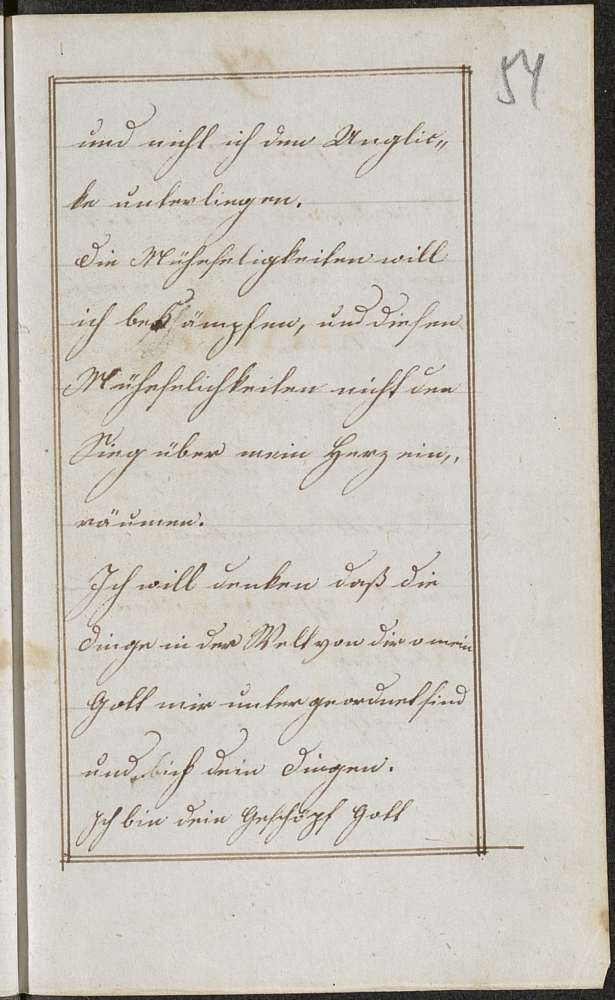 54
und nicht ich dem Unglic„
ke unterliegen.
Die Mühseligkeiten will
ich bekämpfen, und diesen
Mühselichkeiten nicht den
Sieg über mein Herz ein„
räumen.
Ich will denken daß die
Dinge in der Welt von dir o mein
Gott mir untergeordnet sind
und ich den Dingen.
Ich bin dein Geschöpf Gott